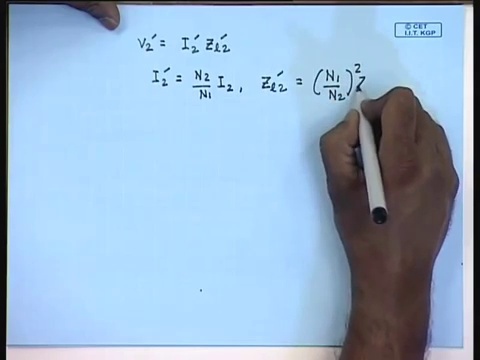 © CET
I.I.T. KGP
V₂′ = I₂′ Z_l2′
I₂′ = N₂/N₁ I₂ , Z_l2′ = (N₁/N₂)² Z